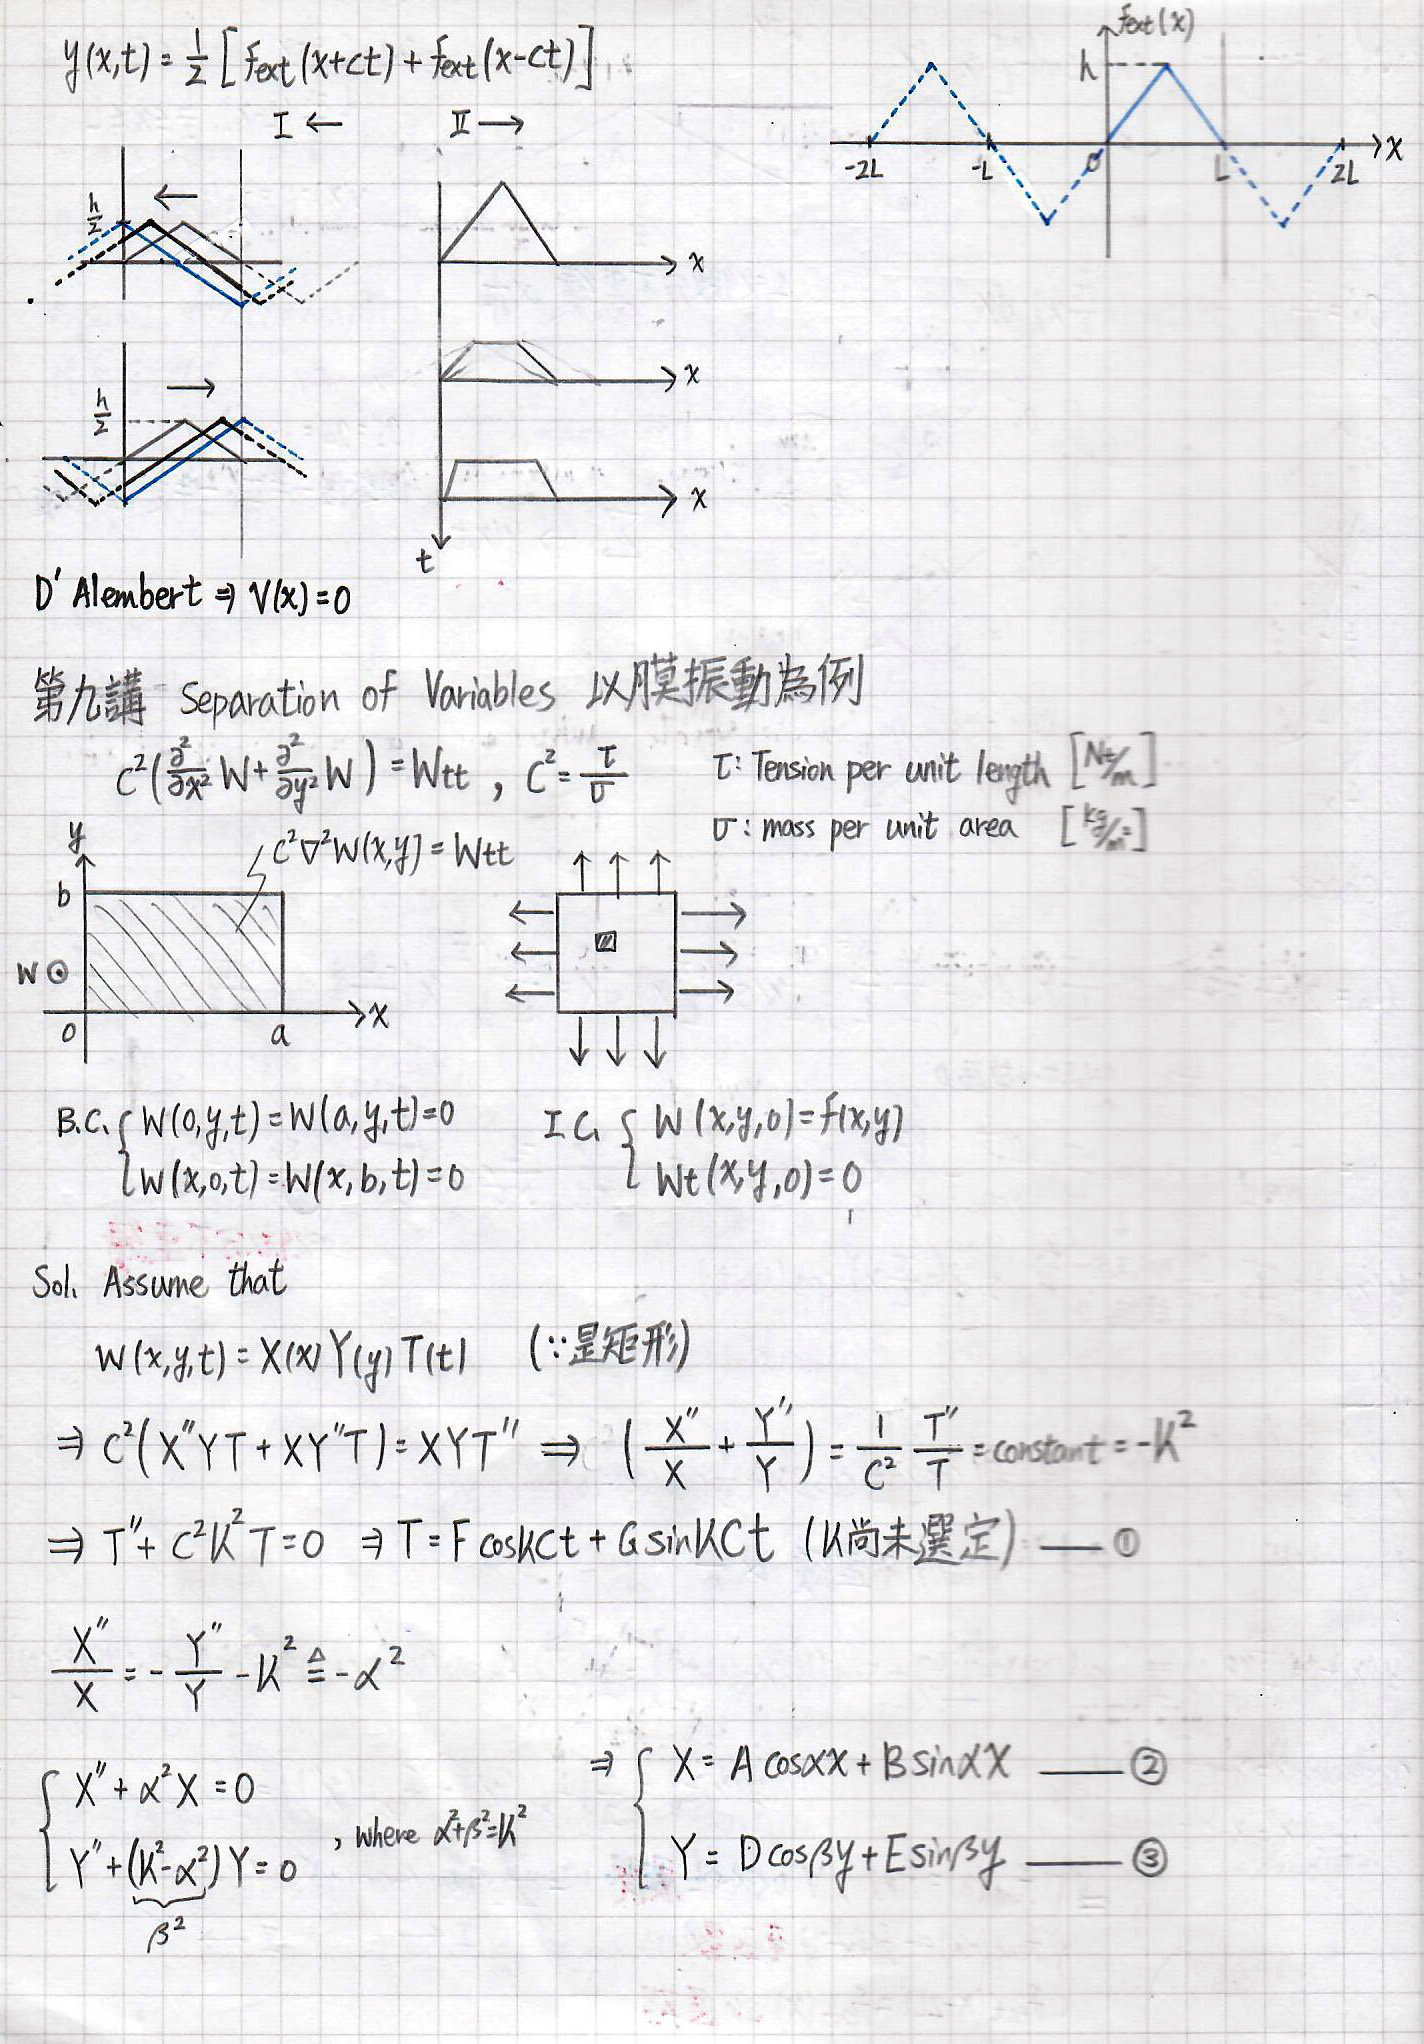 y(x,t) = 1/2 [ fext(x+ct) + fext(x-ct) ]
I ← II →
fext(x)
h
-2L -L 0 L 2L x
h/2
x
x
h/2
x
t
D'Alembert ⇒ V(x)=0
第九講 Separation of Variables 以膜振動為例
C²(∂²/∂x² W + ∂²/∂y² W) = Wtt , C² = τ/σ
τ: Tension per unit length [Nt/m]
σ: mass per unit area [kg/m²]
C²∇²W(x,y) = Wtt
y
b
W ⊙
0 a x
B.C. { W(0,y,t) = W(a,y,t) = 0
W(x,0,t) = W(x,b,t) = 0
I.C. { W(x,y,0) = f(x,y)
Wt(x,y,0) = 0
Sol. Assume that
W(x,y,t) = X(x)Y(y)T(t) (∵是矩形)
⇒ C²(X''YT + XY''T) = XYT'' ⇒ (X''/X + Y''/Y) = 1/C² T''/T = constant = -K²
⇒ T'' + C²K²T = 0 ⇒ T = F cosKCt + G sinKCt (K尚未選定) —— ①
X''/X = -Y''/Y - K² ≜ -α²
{ X'' + α²X = 0
Y'' + (K²-α²)Y = 0
β²
, where α²+β²=K²
⇒ { X = A cosαx + B sinαX —— ②
Y = D cosβy + E sinβy —— ③